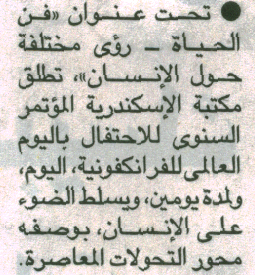 ● تحت عنوان «فن
الحياة - رؤى مختلفة
حول الإنسان»، تطلق
مكتبة الإسكندرية المؤتمر
السنوى للاحتفال باليوم
العالمى للفرانكفونية، اليوم،
ولمدة يومين، ويسلط الضوء
على الإنسان، بوصفه
محور التحولات المعاصرة.